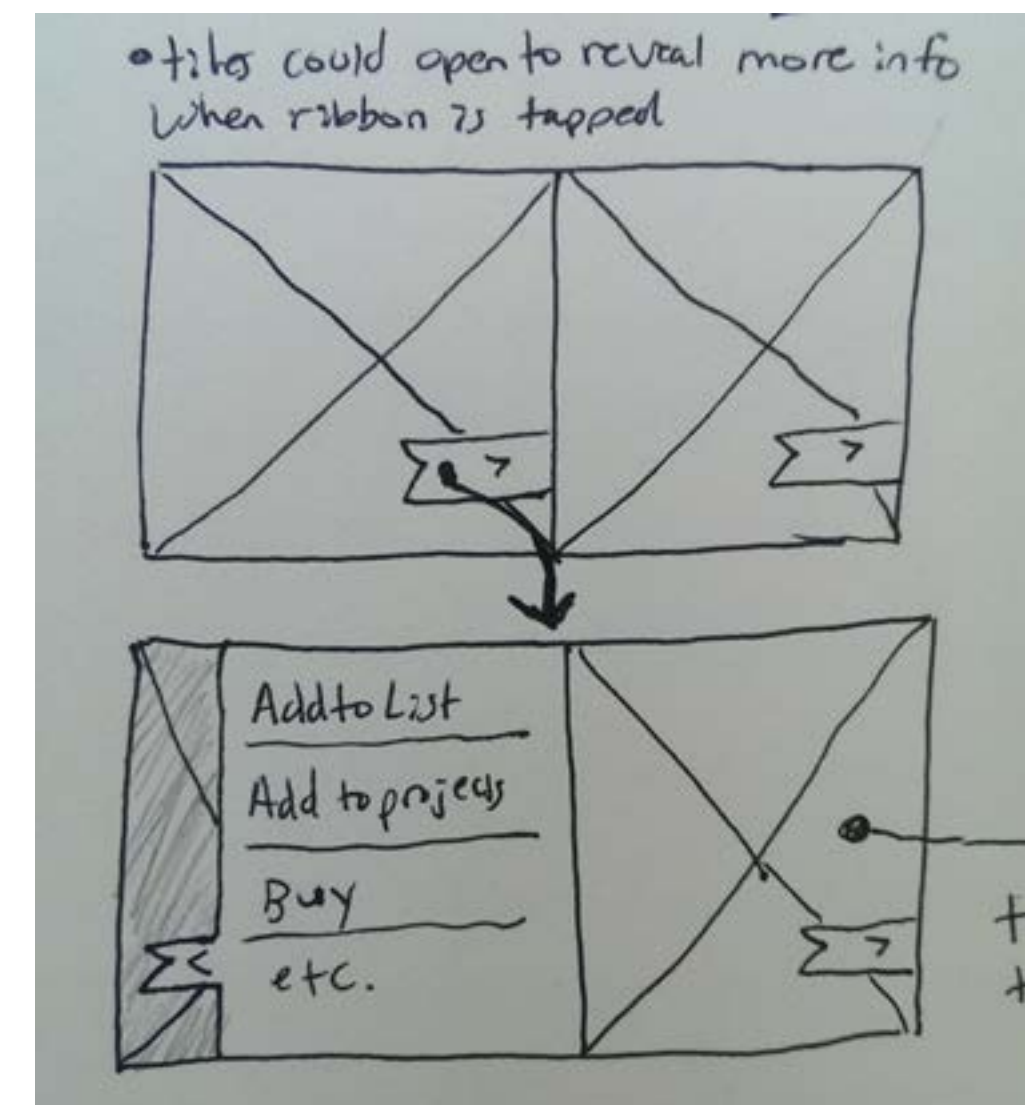 • tiles could open to reveal more info
when ribbon is tapped
>
>
Add to List
Add to projects
Buy
etc.
<
>